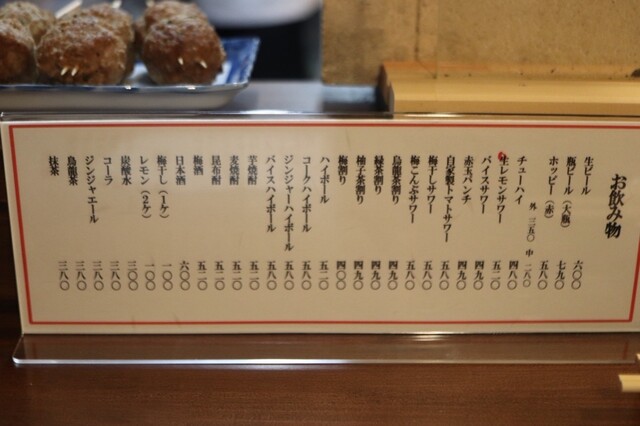 お飲み物
生ビール 六〇〇
瓶ビール（大瓶） 七九〇
ホッピー（赤） 五八〇
外 三五〇 中 二八〇
チューハイ 四八〇
生レモンサワー 五二〇
バイスサワー 四九〇
赤玉パンチ 四九〇
自家製トマトサワー 五八〇
梅干しサワー 五八〇
梅こんぶサワー 五八〇
烏龍茶割り 四九〇
緑茶割り 四九〇
柚子茶割り 四九〇
梅割り 四〇〇
ハイボール 五二〇
コークハイボール 五八〇
ジンジャーハイボール 五八〇
バイスハイボール 五八〇
芋焼酎 五二〇
麦焼酎 五二〇
昆布酎 五二〇
梅酒 五二〇
日本酒 六〇〇
梅干し（1ケ） 一〇〇
レモン（2ケ） 一〇〇
炭酸水 三〇〇
コーラ 三八〇
ジンジャエール 三八〇
烏龍茶 三八〇
抹茶 三八〇